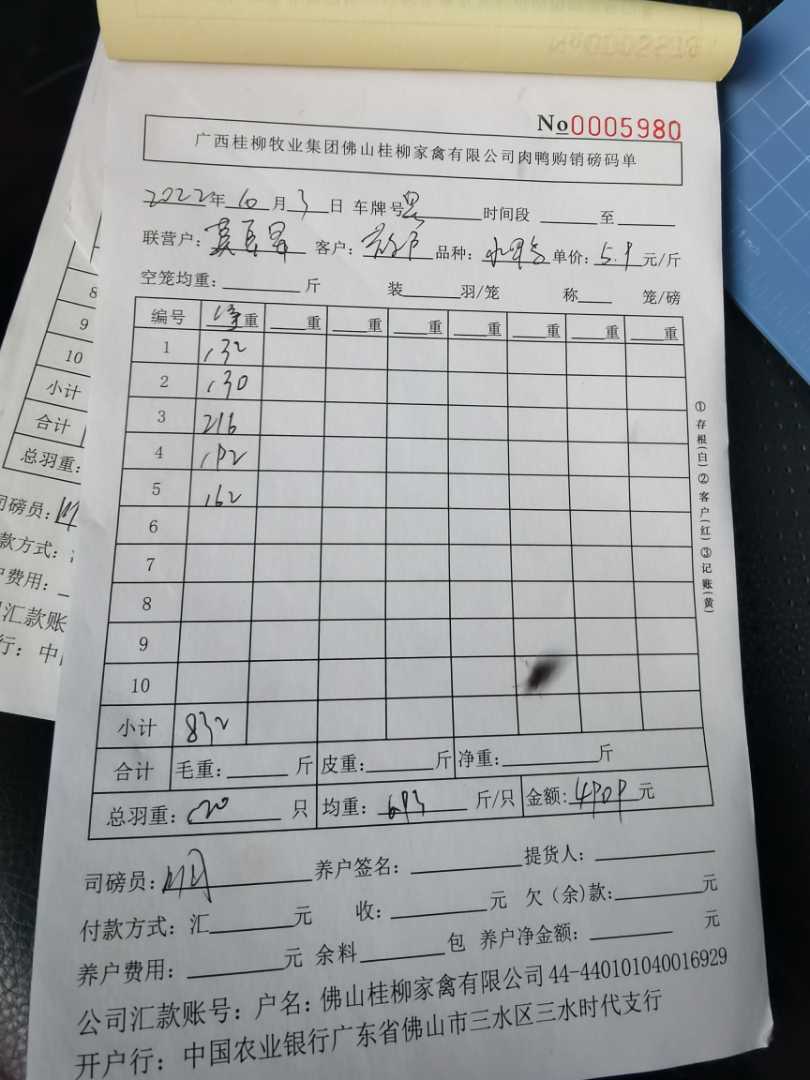 No0005980
广西桂柳牧业集团佛山桂柳家禽有限公司肉鸭购销磅码单
2022年10月3日 车牌号 时间段 至
联营户： 客户： 品种： 单价：5.9元/斤
空笼均重： 斤 装 羽/笼 称 笼/磅
编号 净重 重 重 重 重 重 重 重
1 132
2 130
3 216
4 192
5 162
6
7
8
9
10
小计 832
合计 毛重： 斤 皮重： 斤 净重： 斤
总羽重： 只 均重：693 斤/只 金额：4909元
司磅员： 养户签名： 提货人：
付款方式：汇 元 收： 元 欠（余）款： 元
养户费用： 元 余料 包 养户净金额： 元
公司汇款账号：户名：佛山桂柳家禽有限公司44-440101040016929
开户行：中国农业银行广东省佛山市三水区三水时代支行
①存根(白)②客户(红)③记账(黄)
8
9
10
小计
合计
总羽重：
司磅员：
款方式：
户费用：
汇款账
行：中